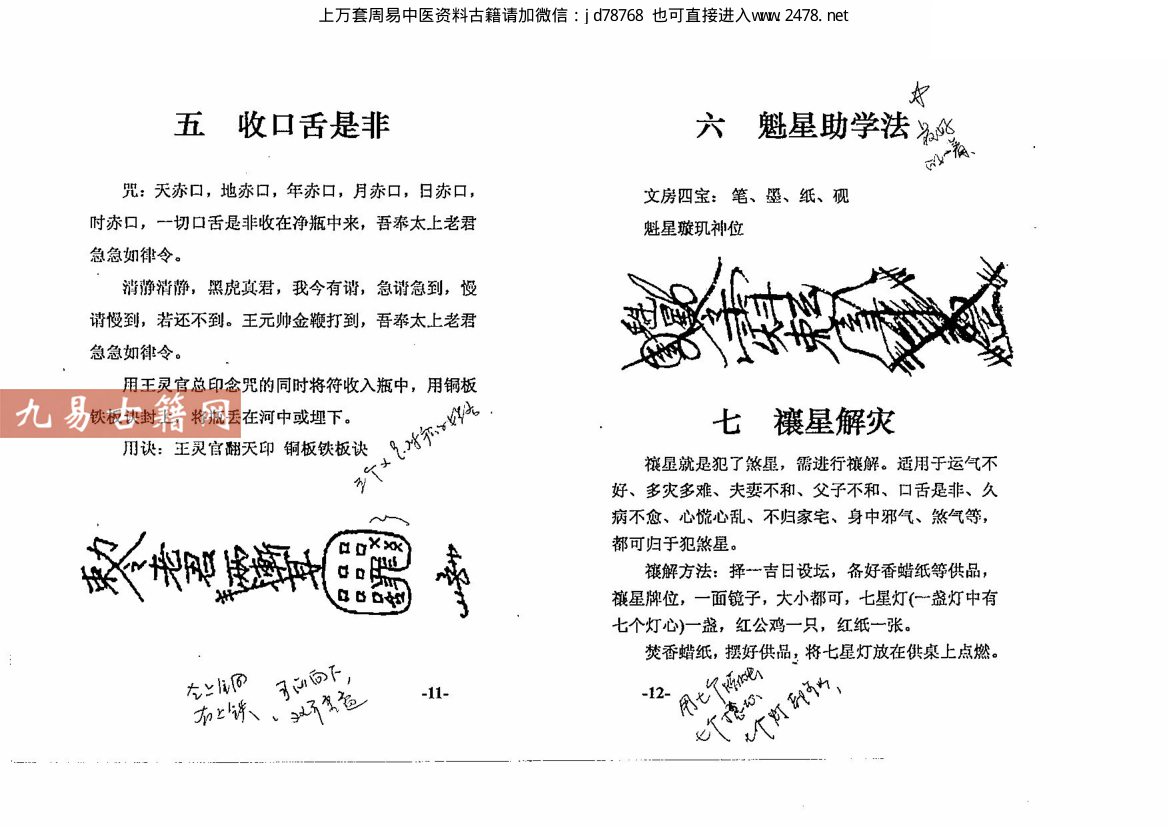 上万套周易中医资料古籍请加微信：jd78768 也可直接进入www.2478.net
五 收口舌是非
咒：天赤口，地赤口，年赤口，月赤口，日赤口，
时赤口，一切口舌是非收在净瓶中来，吾奉太上老君
急急如律令。
清静清静，黑虎真君，我今有请，急请急到，慢
请慢到，若还不到。王元帅金鞭打到，吾奉太上老君
急急如律令。
用王灵官总印念咒的同时将符收入瓶中，用铜板
铁板诀封上，将瓶丢在河中或埋下。
用诀：王灵官翻天印 铜板铁板诀
九易古籍网
-11-
六 魁星助学法
文房四宝： 笔、墨、纸、砚
魁星璇玑神位
七 禳星解灾
禳星就是犯了煞星，需进行禳解。适用于运气不
好、多灾多难、夫妻不和、父子不和、口舌是非、久
病不愈、心慌心乱、不归家宅、身中邪气、煞气等，
都可归于犯煞星。
禳解方法：择一吉日设坛，备好香蜡纸等供品，
禳星牌位，一面镜子，大小都可，七星灯(一盏灯中有
七个灯心)一盏，红公鸡一只，红纸一张。
焚香蜡纸，摆好供品，将七星灯放在供桌上点燃。
-12-